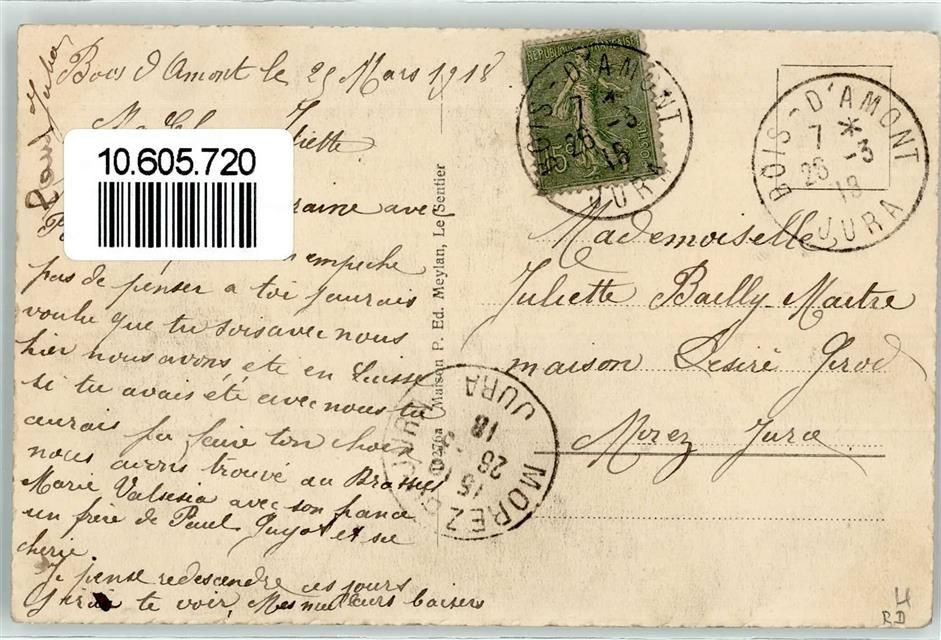 Bois d'Amont le 25 Mars 1918
Juliette
10.605.720
avec
empeche
pas de penser a toi j'aurais
voulu que tu sois avec nous
hier nous avons ete en Suisse
si tu avais ete avec nous tu
aurais pu faire ton choix
nous avons trouvé au Brassus
Marie Valsesia avec son fiance
un frère de Paul Guyot et sa
cherie.
Je pense redescendre ces jours
J'irai te voir, Mes meilleurs baisers
10276a Maison P. Ed. Meylan, Le Sentier
REPUBLIQUE FRANÇAISE
15c
BOIS-D'AMONT
7 *
26 -3
18
JURA
BOIS-D'AMONT
7 *
26 -3
18
JURA
Mademoiselle
Juliette Bailly-Maitre
maison Desiré Grod
Morez Jura
MOREZ-DU-JURA
15
26
18
JURA
4
RD